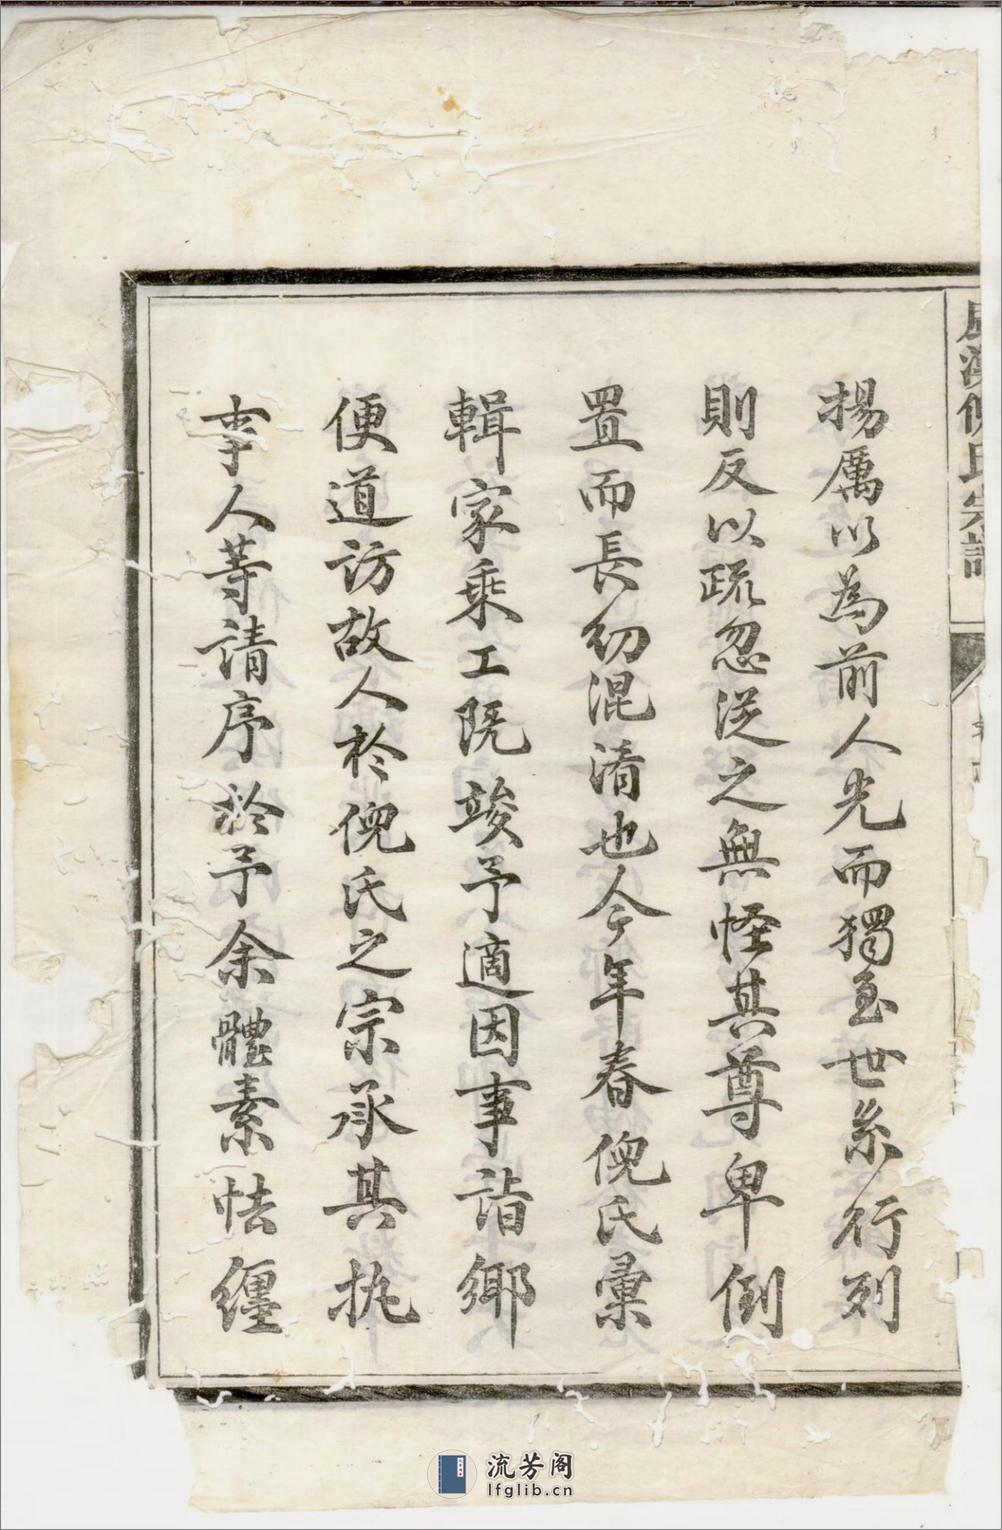 揚厲以為前人光而獨至世系行列
則反以疏忽从之無怪其尊卑倒
置而長幼混淆也今年春倪氏彙
輯家乘工既竣予適因事詣鄉
便道訪故人於倪氏之宗承其执
事人等请序於予余體素怯纏
氏宗譜
流芳阁
lfglib.cn